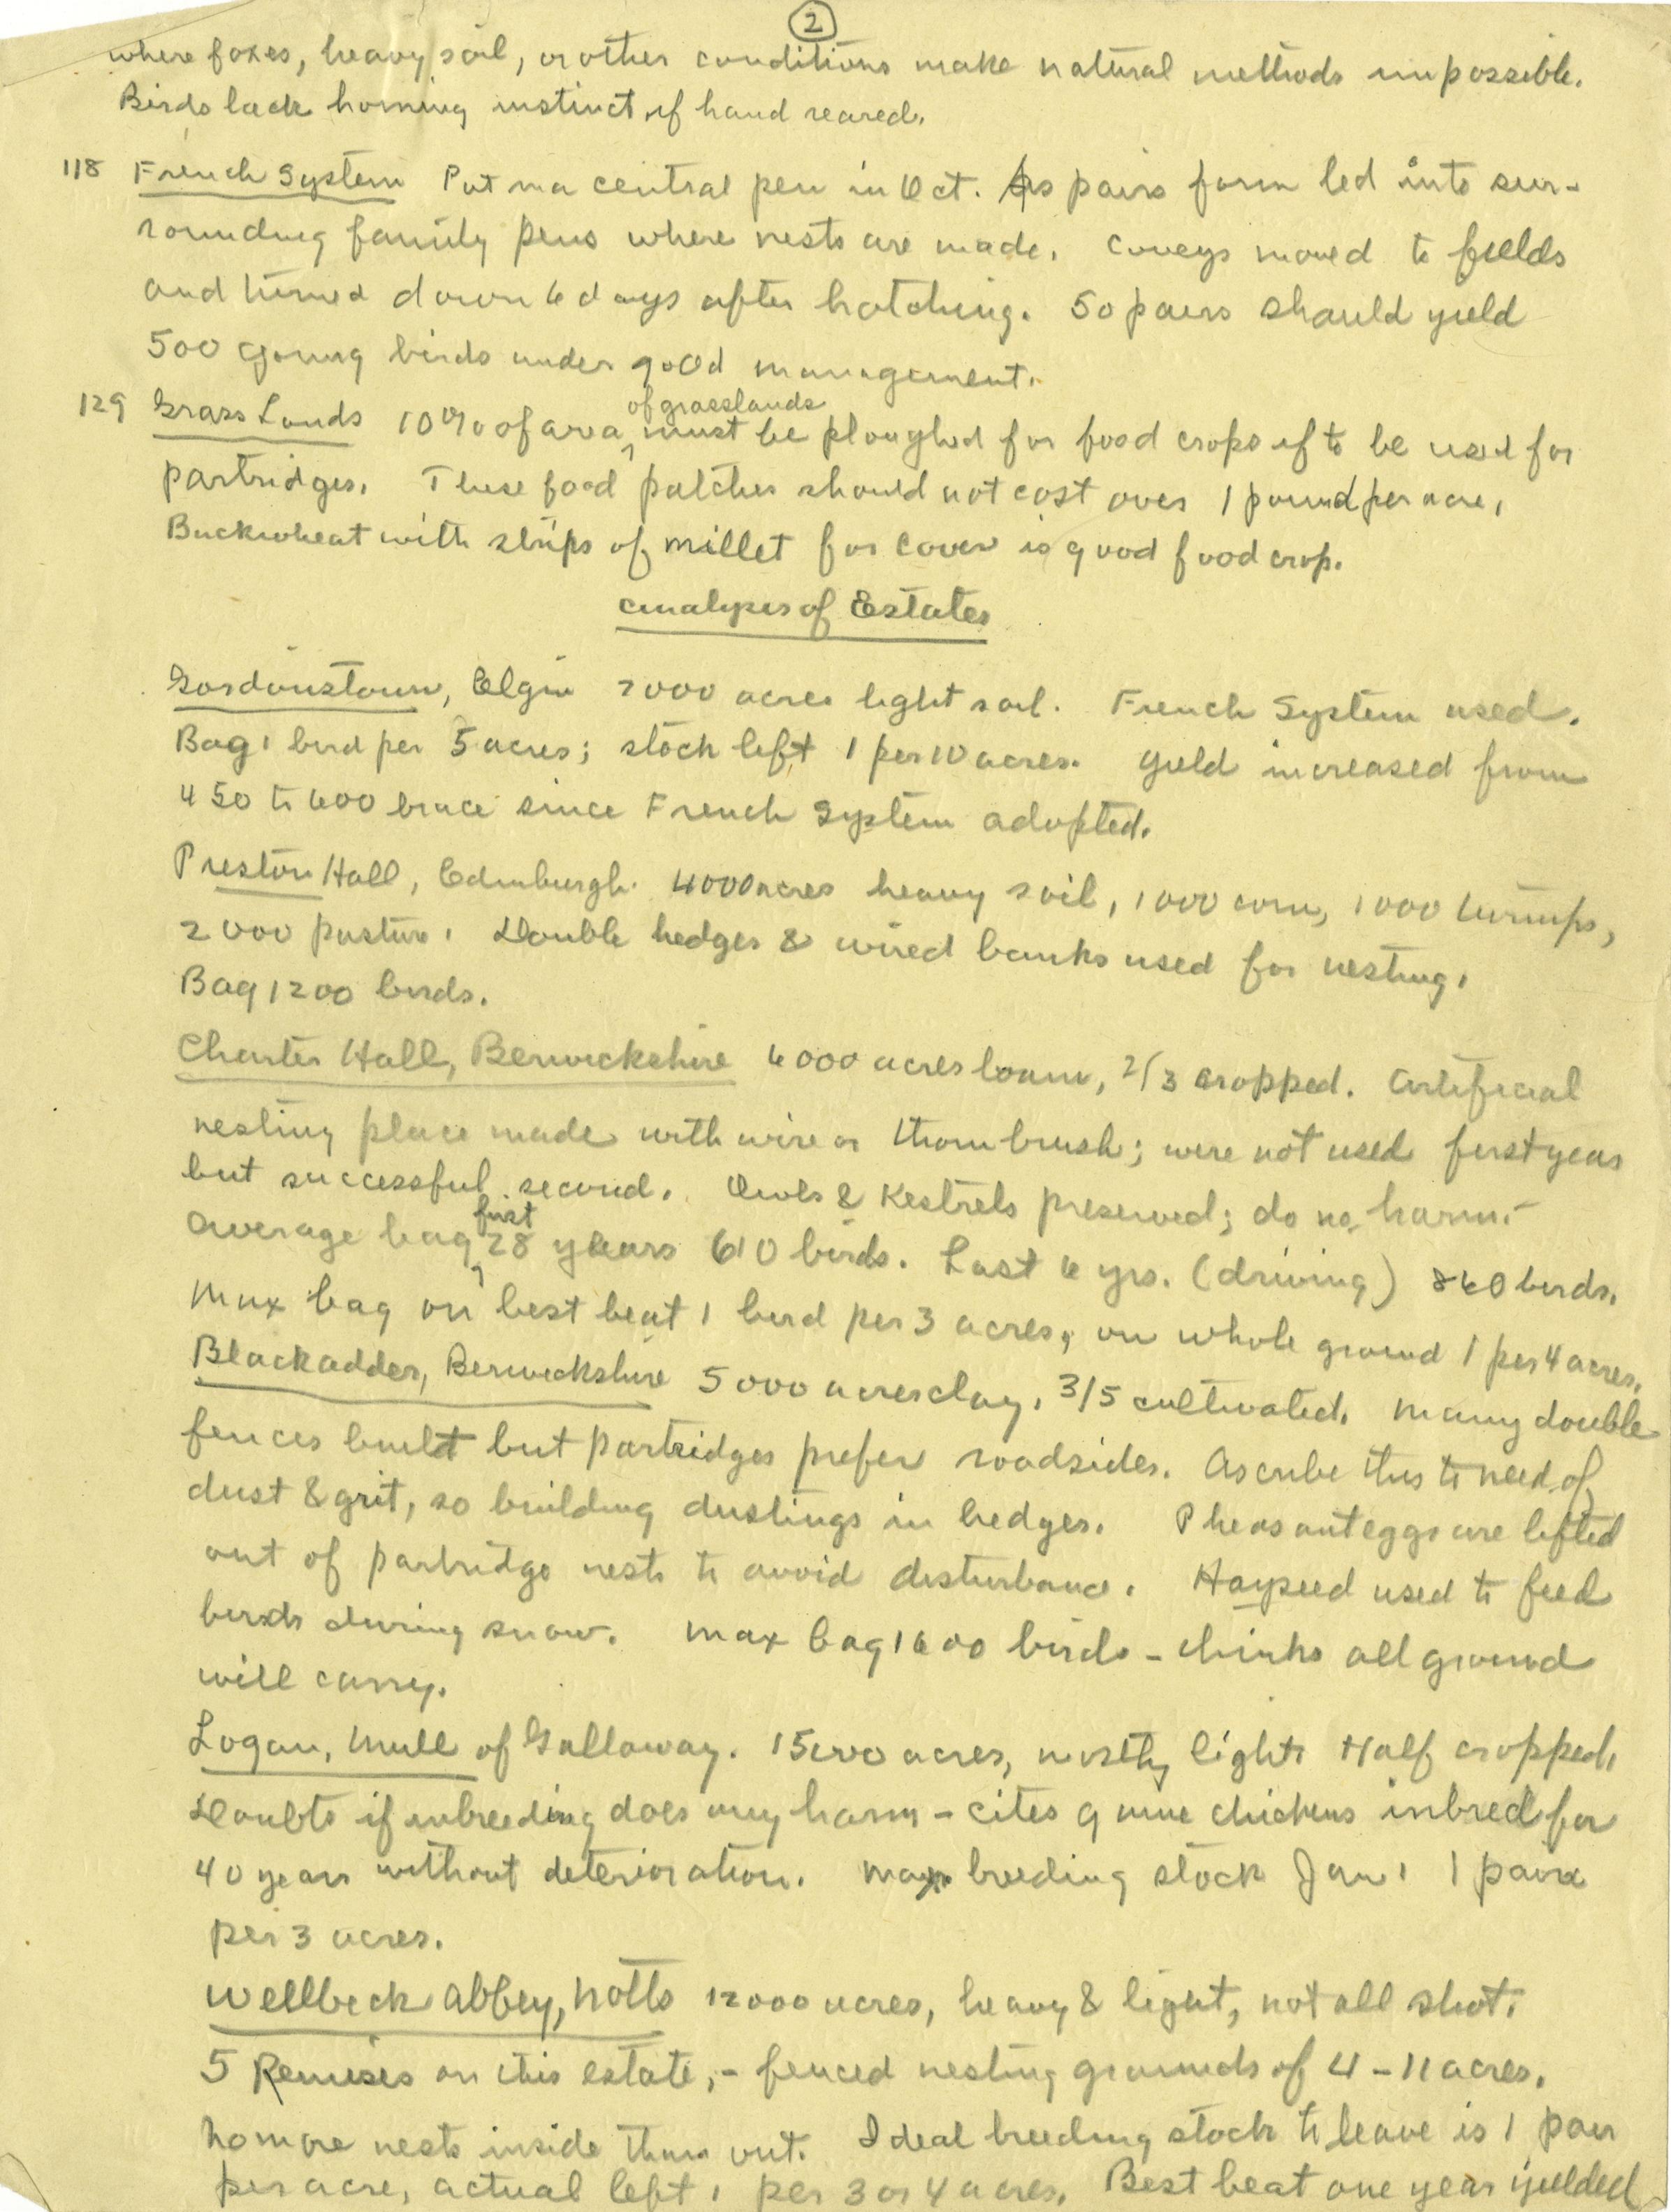 2
where foxes, heavy soil, or other conditions make natural methods impossible.
Birds lack homing instinct if hand reared.
118 French System Put in a central pen in Oct. As pairs form led into sur-
rounding family pens where nests are made. Coveys moved to fields
and turned down 6 days after hatching. 50 pairs should yield
500 young birds under good management.
129 Grass Lands 10% of area of grasslands must be ploughed for food crops if to be used for
partridges. These food patches should not cost over 1 pound per acre.
Buckwheat with strips of millet for cover is good food crop.
Analysis of Estates
Gordonstoun, Elgin 7000 acres light soil. French System used.
Bag 1 bird per 5 acres; stock left 1 per 10 acres. Yield increased from
450 to 600 brace since French System adopted.
Preston Hall, Edinburgh. 4000 acres heavy soil, 1000 corn, 1000 turnips,
2000 pasture. Double hedges & wired banks used for nesting.
Bag 1200 birds.
Charter Hall, Berwickshire 6000 acres loam, 2/3 cropped. Artificial
nesting place made with wire or thorn brush; were not used first year
but successful second. Owls & Kestrels preserved; do no harm.
Average bag first 28 years 610 birds. Last 6 yrs. (driving) 860 birds.
Max bag on best beat 1 bird per 3 acres, on whole ground 1 per 4 acres.
Blackadder, Berwickshire 5000 acres clay, 3/5 cultivated. Many double
fences built but partridges prefer roadsides. Ascribe this to need of
dust & grit, so building dustings in hedges. Pheasant eggs are lifted
out of partridge nests to avoid disturbance. Hayseed used to feed
birds during snow. Max bag 1600 birds - thinks all ground
will carry.
Logan, Mull of Galloway. 15000 acres, mostly light. Half cropped.
Doubts if inbreeding does any harm - cites game chickens inbred for
40 years without deterioration. Max breeding stock Jan 1 1 pair
per 3 acres.
Wellbeck Abbey, Notts 12000 acres, heavy & light, not all shot.
5 Remises on this estate, - fenced nesting grounds of 4 - 11 acres.
No more nests inside than out. Ideal breeding stock to leave is 1 pair
per acre, actual left 1 per 3 or 4 acres. Best beat one year yielded